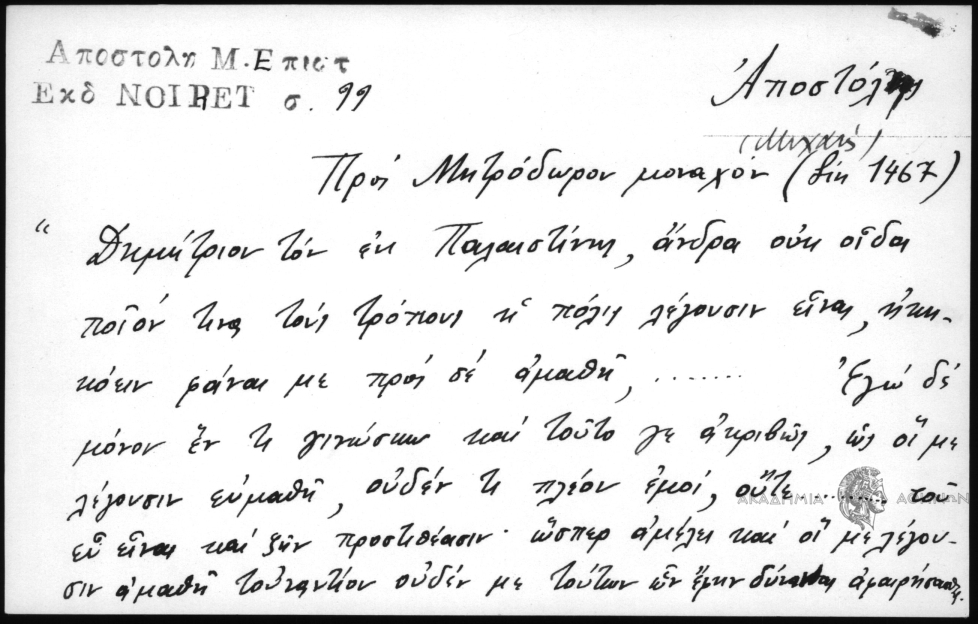 Αποστολη Μ. Επιστ
Εκδ NOIRET σ. 99
Ἀποστόλης
(Μιχαήλ)
Πρὸς Μητρόδωρον μοναχόν (1467)
“ Δημήτριον τόν ἐκ Παλαιστίνης, ἄνδρα οὐκ οἶδα
ποῖόν τινα τούς τρόπους ἤ πόλις λέγουσιν εἶναι, ἠκη-
κόειν φάναι με πρός σέ ἀμαθῆ, ....... Ἐγώ δέ
μόνον ἕν τι γινώσκω καί τοῦτό γε ἀκριβῶς, ὡς οἵ με
λέγουσιν εὐμαθῆ, οὐδέν τι πλέον ἐμοί, οὔτε ........ τοῦ
εὖ εἶναι καί ζῆν προστιθέασιν· ὥσπερ ἀμέλει καί οἵ με λέγου-
σιν ἀμαθῆ τοὐναντίον οὐδέν με τούτων ὧν ἔχειν δύναται ἀφαιρήσασθαι.
ΑΚΑΔΗΜΙΑ ΑΘΗΝΩΝ